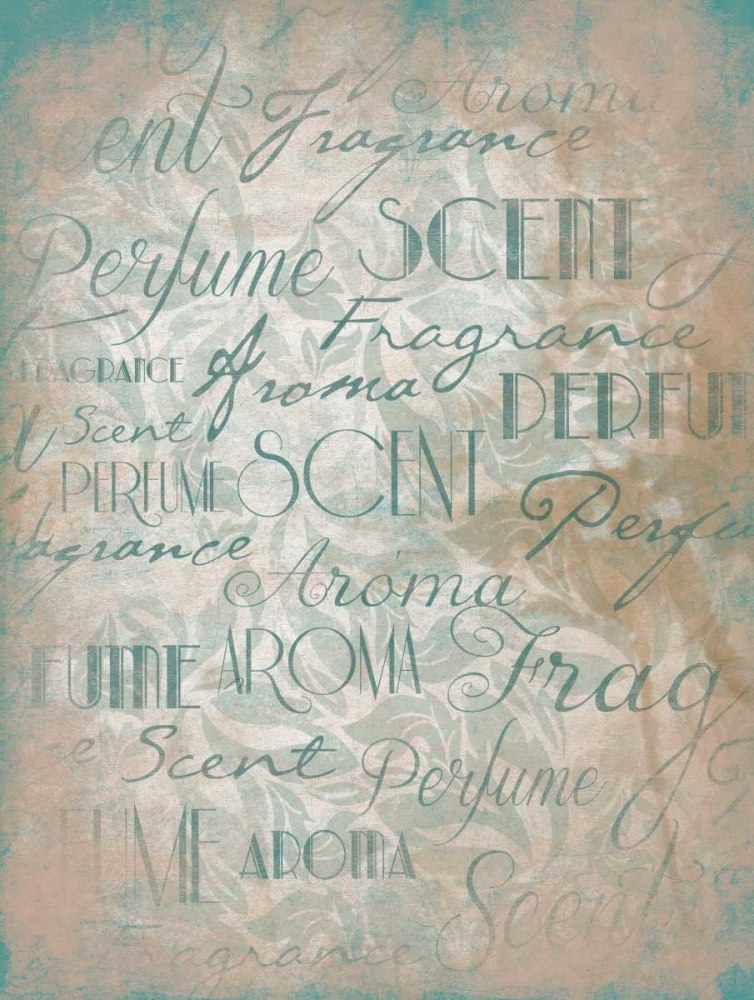 Aroma
cent Fragrance
Perfume SCENT
Fragrance
FRAGRANCE Aroma PERFUM
Scent
PERFUME SCENT
Perfu
agrance
Aroma
FUME AROMA Frag
e Scent Perfume
FUME AROMA Scent
Fragrance